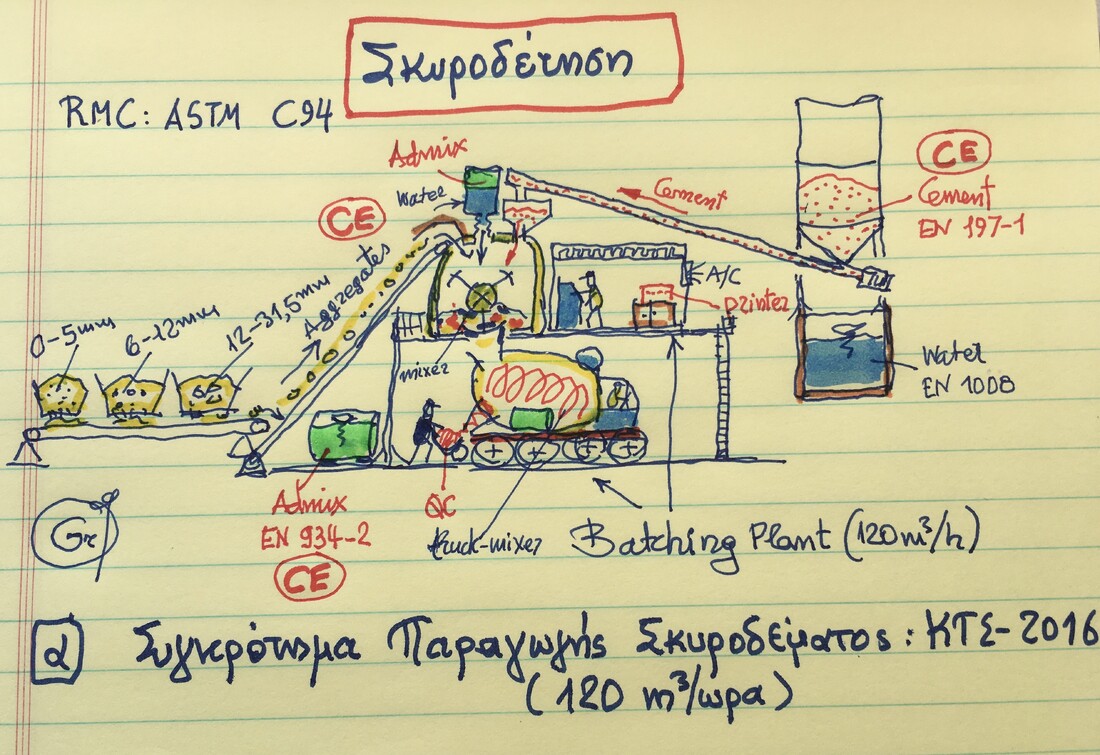 Σκυροδέτηση
RMC: ASTM C94
Admix
Water
Cement
CE
Cement
EN 197-1
CE
Aggregates
A/C
Printer
0-5mm
6-12mm
12-31,5mm
mixer
Water
EN 1008
Admix
EN 934-2
CE
QC
truck-mixer
Batching Plant (120m³/h)
Gr
α Συγκρότημα Παραγωγής Σκυροδέματος: ΚΤΣ-2016
(120 m³/ωρα)